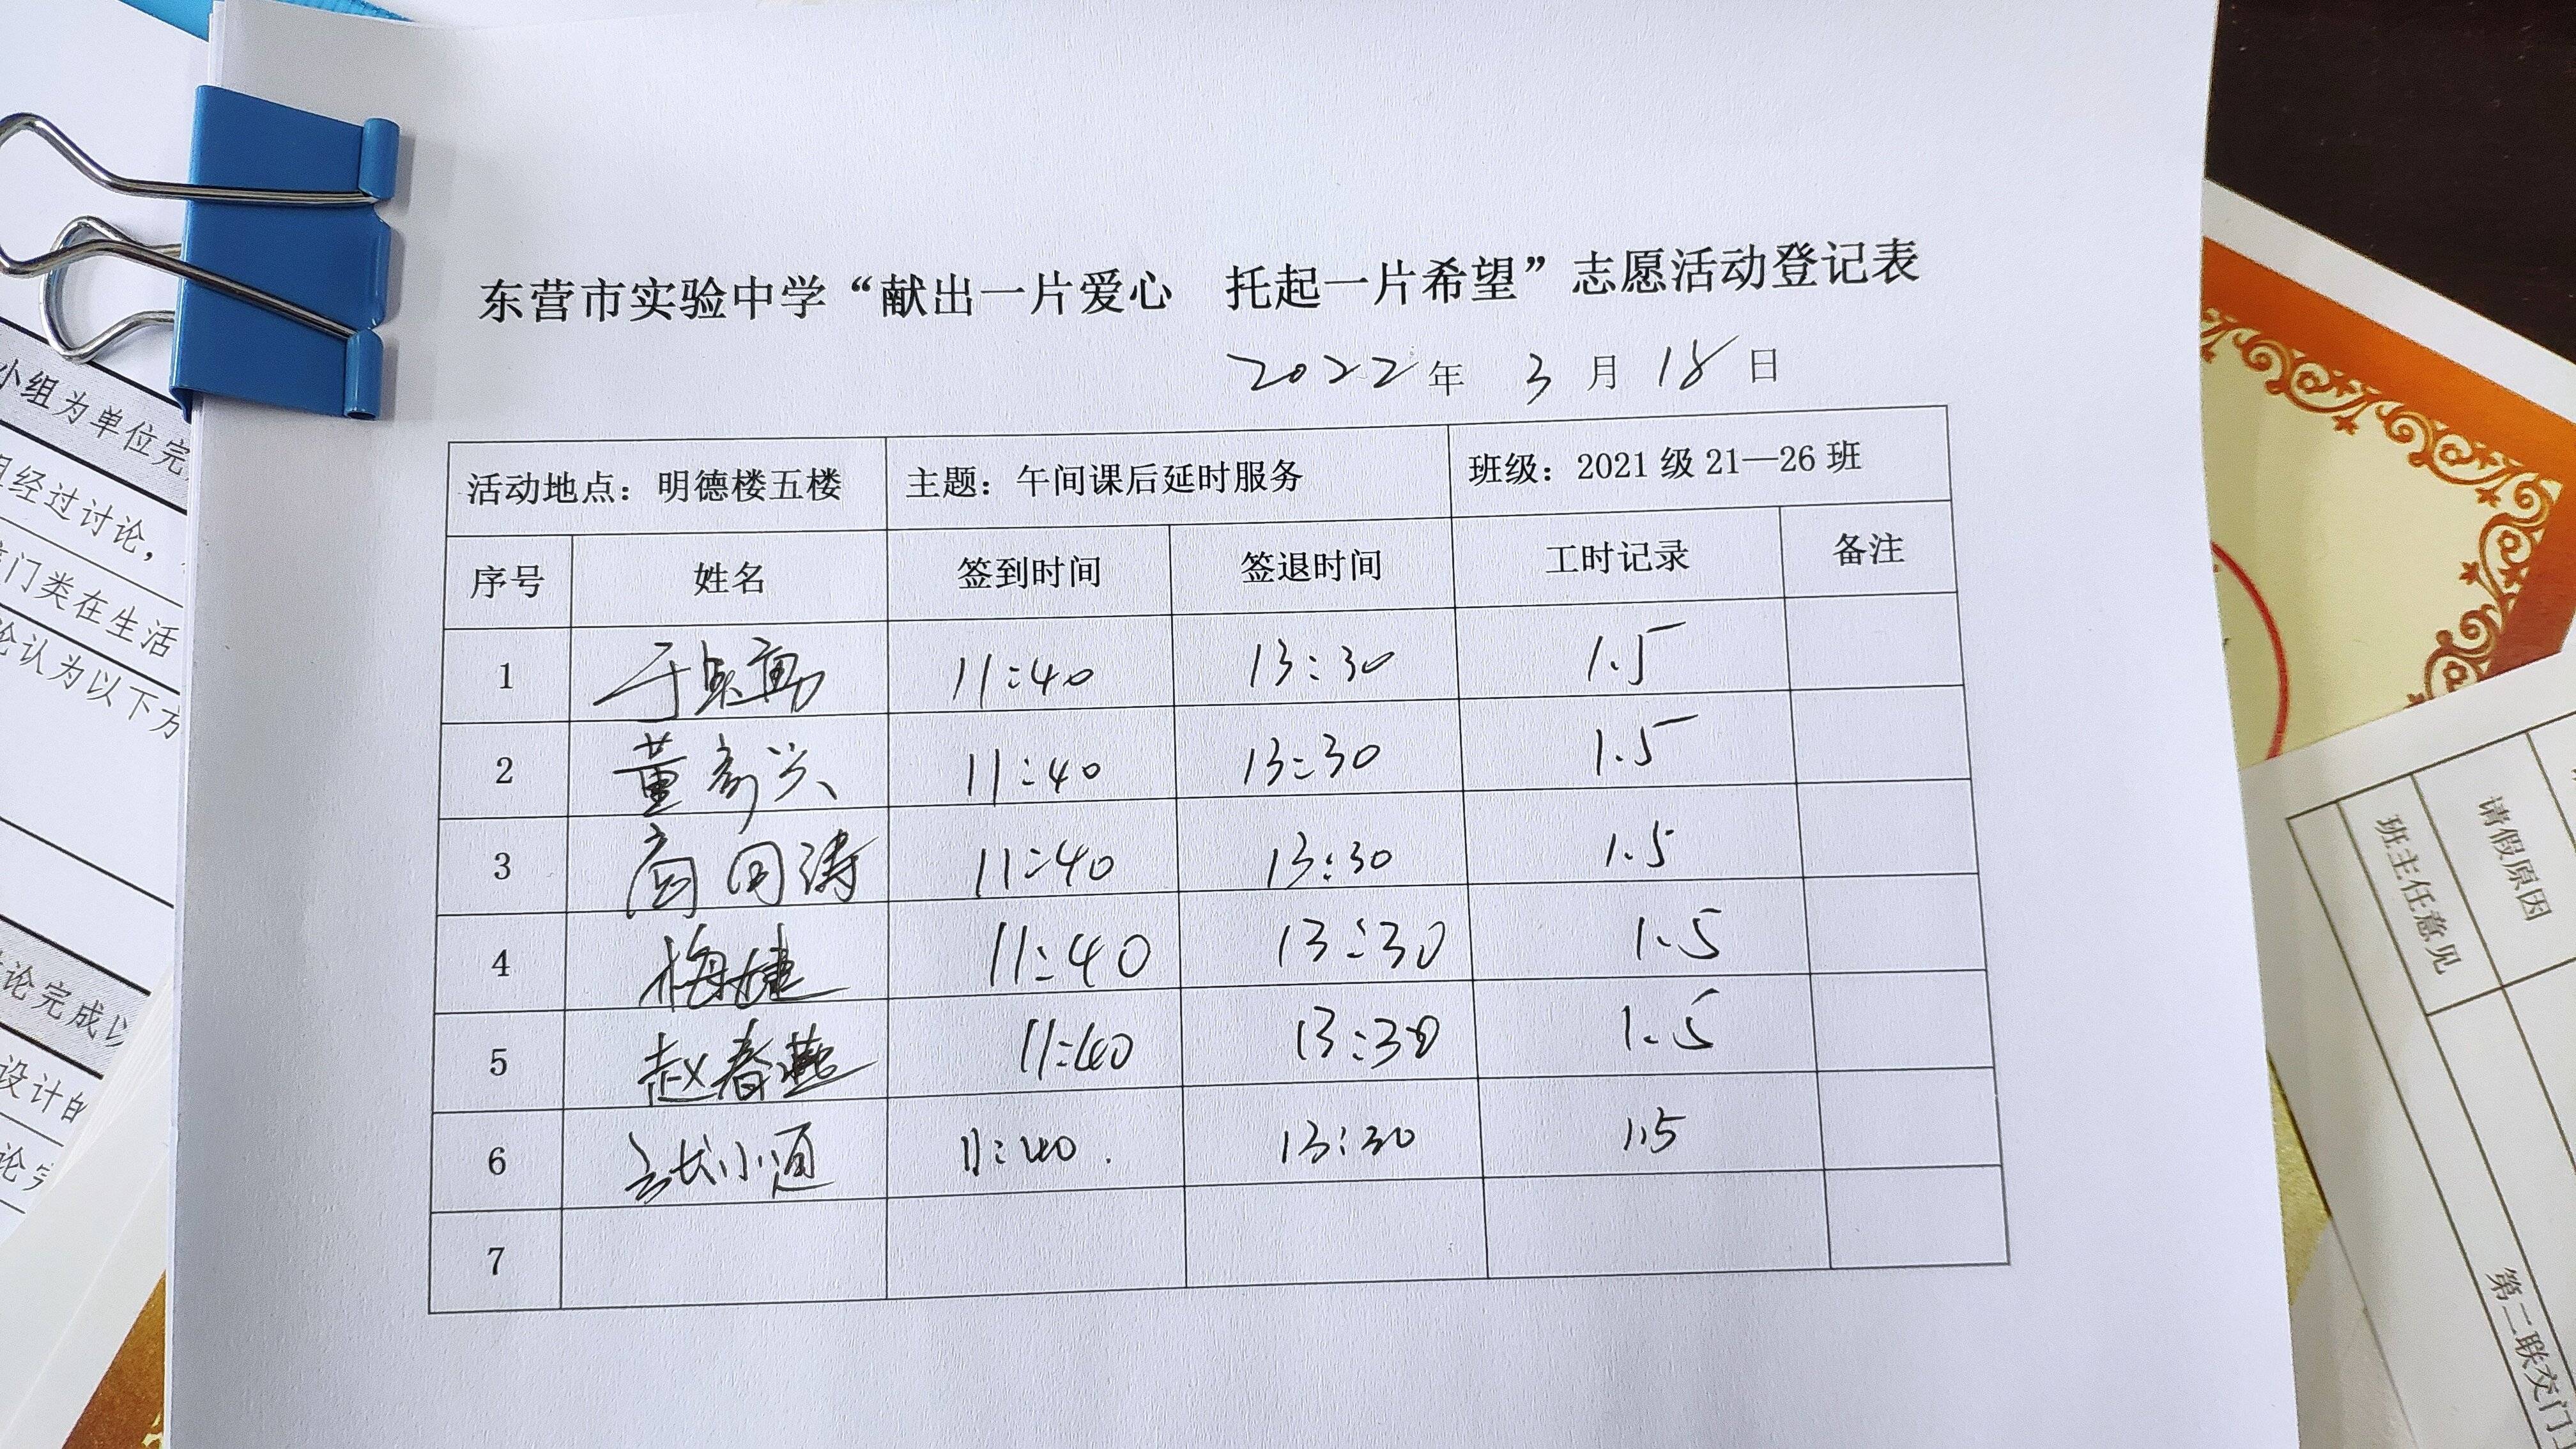 东营市实验中学“献出一片爱心 托起一片希望”志愿活动登记表
2022年 3月 18日
活动地点：明德楼五楼 主题：午间课后延时服务 班级：2021级21—26班
序号 姓名 签到时间 签退时间 工时记录 备注
1 于 11:40 13:30 1.5
2 董彦兴 11:40 13:30 1.5
3 商国涛 11:40 13:30 1.5
4 梅婕 11:40 13:30 1.5
5 赵春燕 11:40 13:30 1.5
6 小通 11:40 13:30 1.5
7
小组为单位完
组经过讨论，
门类在生活
论认为以下方
讨论完成以
设计的
论完
请假原因
班主任意见
第二联交门